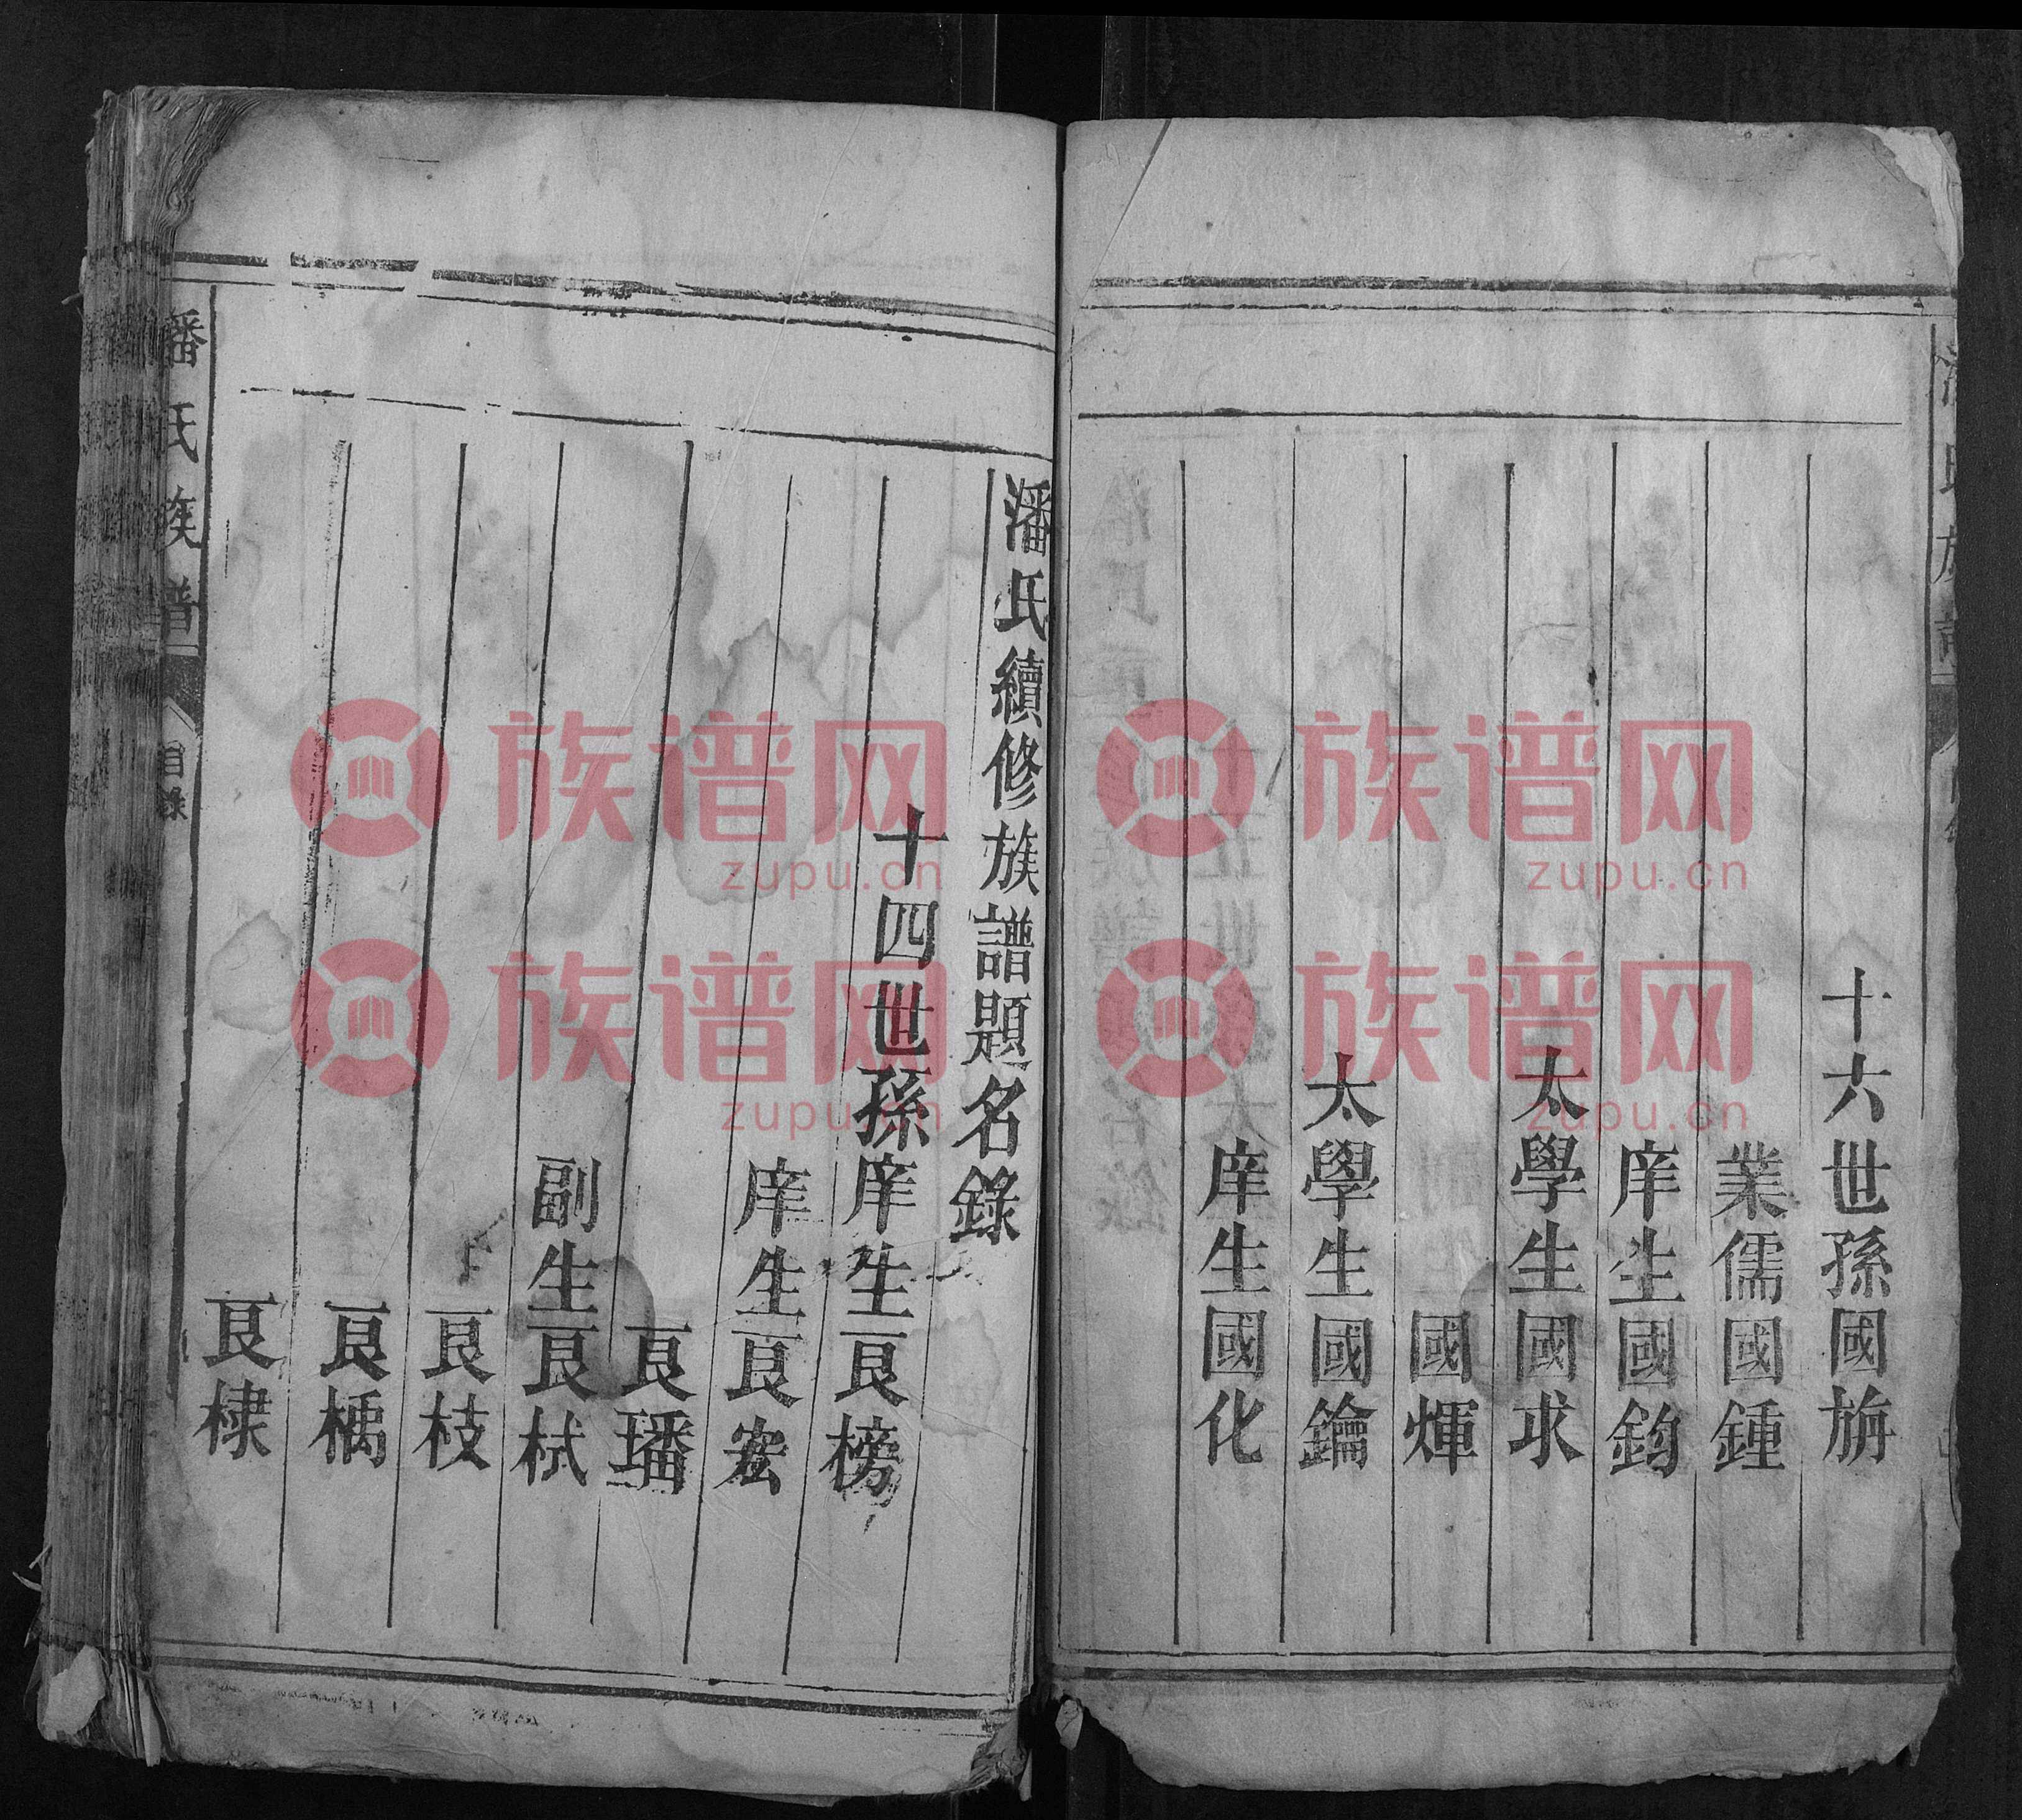 十六世孫國旃
業儒國鍾
庠生國鈞
太學生國求
國煇
太學生國鑰
庠生國化
潘氏續修族譜題名錄
十四世孫庠生艮榜
庠生艮宏
艮璠
副生艮栻
艮枝
艮楀
艮棣
潘氏族譜
目錄
族谱网
zupu.cn
族谱网
zupu.cn
族谱网
zupu.cn
族谱网
zupu.cn